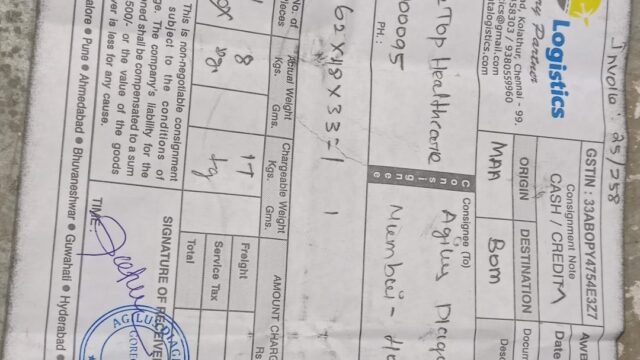 Invoice : 25/258
Logistics
ng Partner
ad, Kolathur, Chennai - 99.
58303 / 9380559960
cs@gmail.com
talogistics.com
GSTIN : 33ABOPY4754E3Z7
Consignment Note
CASH / CREDIT
AWB
Date
ORIGIN
DESTINATION
MAA
BOM
Docum
Desc
Top Healthcare
00095
PH.:
Consignee
Consignee (To)
Agilus Diag
Mumbai -
62 X 48 X 33 = 1
1
No. of
Pieces
Actual Weight
Kgs.
Gms.
Chargeable Weight
Kgs.
Gms.
AMOUNT CHARG
Rs
8
kg
17
kg
Freight
Service Tax
Total
This is non-negotiable consignment
subject to the conditions of
ge. The company's liability for the
ned shall be compensated to a sum
500/- or the value of the goods
ver is less for any cause.
SIGNATURE OF RECEIVE
TIME:
AGILUS DIAG
alore ● Pune ● Ahmedabad ● Bhuvaneshwar ● Guwahati ● Hyderabad ●